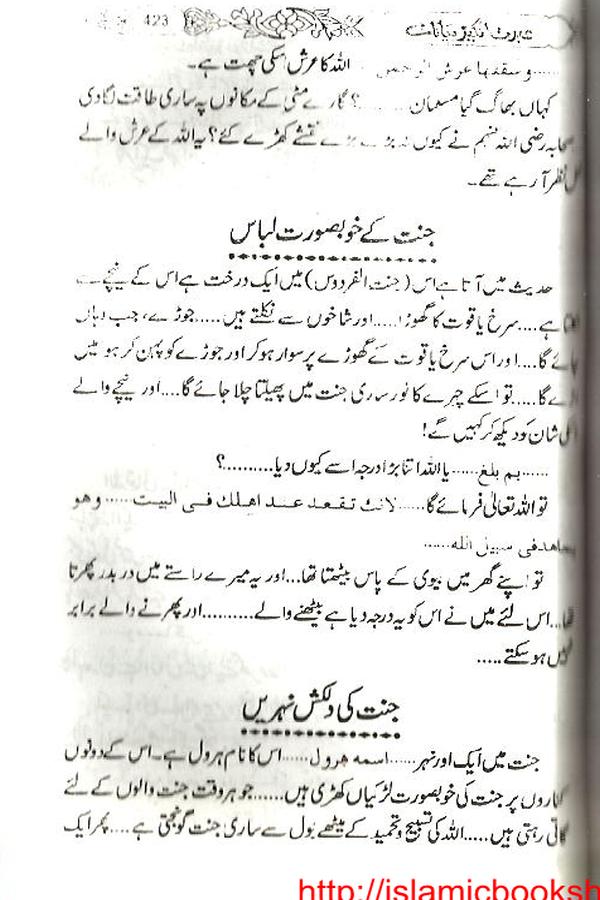 عبرت انگیز بیانات 423
......وسقفها عرش الرحمن ...... اللہ کا عرش اسکی چھت ہے۔
کہاں بھاگ گیا مسلمان ........؟ گارے مٹی کے مکانوں پہ ساری طاقت لگا دی
صحابہ رضی اللہ عنہم نے کیوں نہ بڑے بڑے نقشے کھڑے کئے؟ یہ اللہ کے عرش والے
نظر آ رہے تھے۔
جنت کے خوبصورت لباس
حدیث میں آتا ہے اس (جنت الفردوس) میں ایک درخت ہے اس کے نیچے سے
ہے....سرخ یاقوت کا گھوڑا.....اور شاخوں سے نکلتے ہیں.....جوڑے، جب وہاں
جائے گا....اور اس سرخ یاقوت کے گھوڑے پر سوار ہو کر اور جوڑے کو پہن کر ہو میں
گا.....تو اسکے چہرے کا نور ساری جنت میں پھیلتا چلا جائے گا....اور نیچے والے
شان کو دیکھ کر کہیں گے!
......بم بلغ......یا اللہ اتنا بڑا درجہ اسے کیوں دیا.........؟
تو اللہ تعالیٰ فرمائے گا.....لانك تقعد عند اهلك فى البيت.....وهو
يجاهد فى سبيل الله......
تو اپنے گھر میں بیوی کے پاس بیٹھتا تھا...اور یہ میرے راستے میں در بدر پھرتا
تھا...اس لئے میں نے اس کو یہ درجہ دیا ہے بیٹھنے والے..........اور پھرنے والے برابر
نہیں ہو سکتے.....
جنت کی دلکش نہریں
جنت میں ایک اور نہر......اسمه هرول......اس کا نام ہرول ہے۔ اس کے دونوں
کناروں پر جنت کی خوبصورت لڑکیاں کھڑی ہیں.......جو ہر وقت جنت والوں کے لئے
گاتی رہتی ہیں.....اللہ کی تسبیح و تحمید کے میٹھے بول سے ساری جنت گونجتی ہے....پھر ایک
http://islamicbooksh